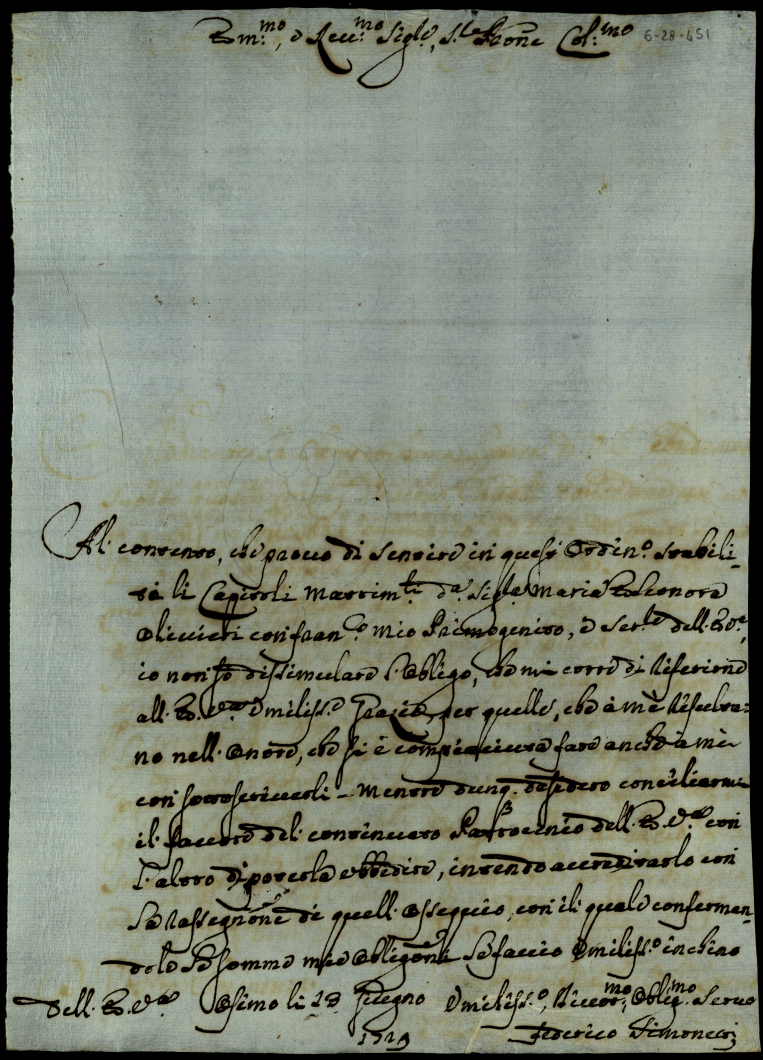 Em:mo, e Rev:mo Sig.re, S.re Prone Col:mo 6-28-451
Al contento, che provo di sentire in quest' Ordin.o stabili-
ti li Capitoli Matrim.li da Sig.ra Maria Eleonora
Olivieri con Fran.co mio Primogenito, e Ser.re dell' E. V.a,
io non sò dissimulare l' Obligo, che mi corre di riferirne
all' E. V.ra Umiliss.e Grazie, per quello, che à mè risulta-
no nell' Onore, che si è compiaciuta fare anche a mè
con sottoscriverli - Mentre dunq. desidero conciliarmi
il favore del continuato Patrocinio dell' E. V.ra con
l' altro di poterla obbedire, intendo accreditarlo con
la rassegnõne di quell' ossequio, con il quale conferman-
dole le somme mie Obligõni le faccio Umiliss.o inchino
Dell' E. V.ra Osimo li 18 Giugno Umiliss.o, Devot.mo, Oblig.mo Servo
1729 Federico Simonetti